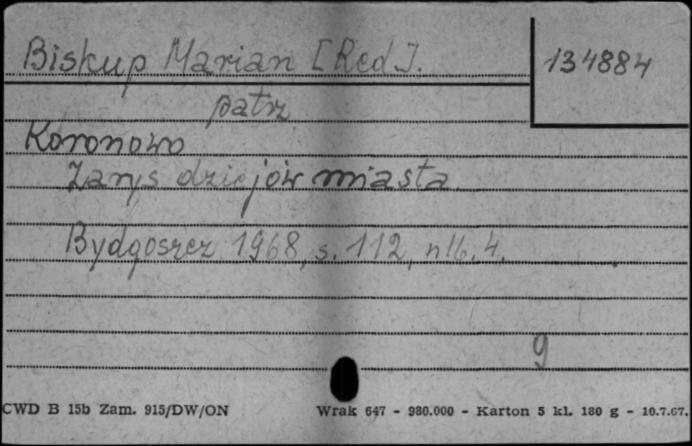 Biskup Marian [Red].
134884
patrz
Koronowo
Zarys dziejów miasta.
Bydgoszcz 1968, s. 112, nlb. 4.
9
CWD B 15b Zam. 915/DW/ON
Wrak 647 - 980.000 - Karton 5 kl. 180 g - 10.7.67.